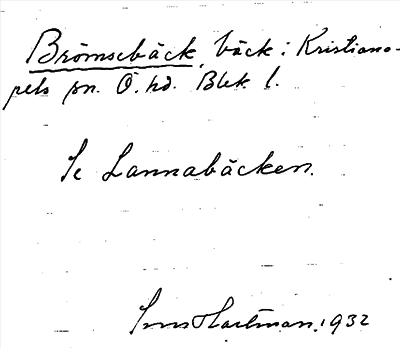 Brömsebäck, bäck i Kristiano-
pels sn. Ö. hd. Blek l.
Se Lannabäcken.
Hartman. 1932